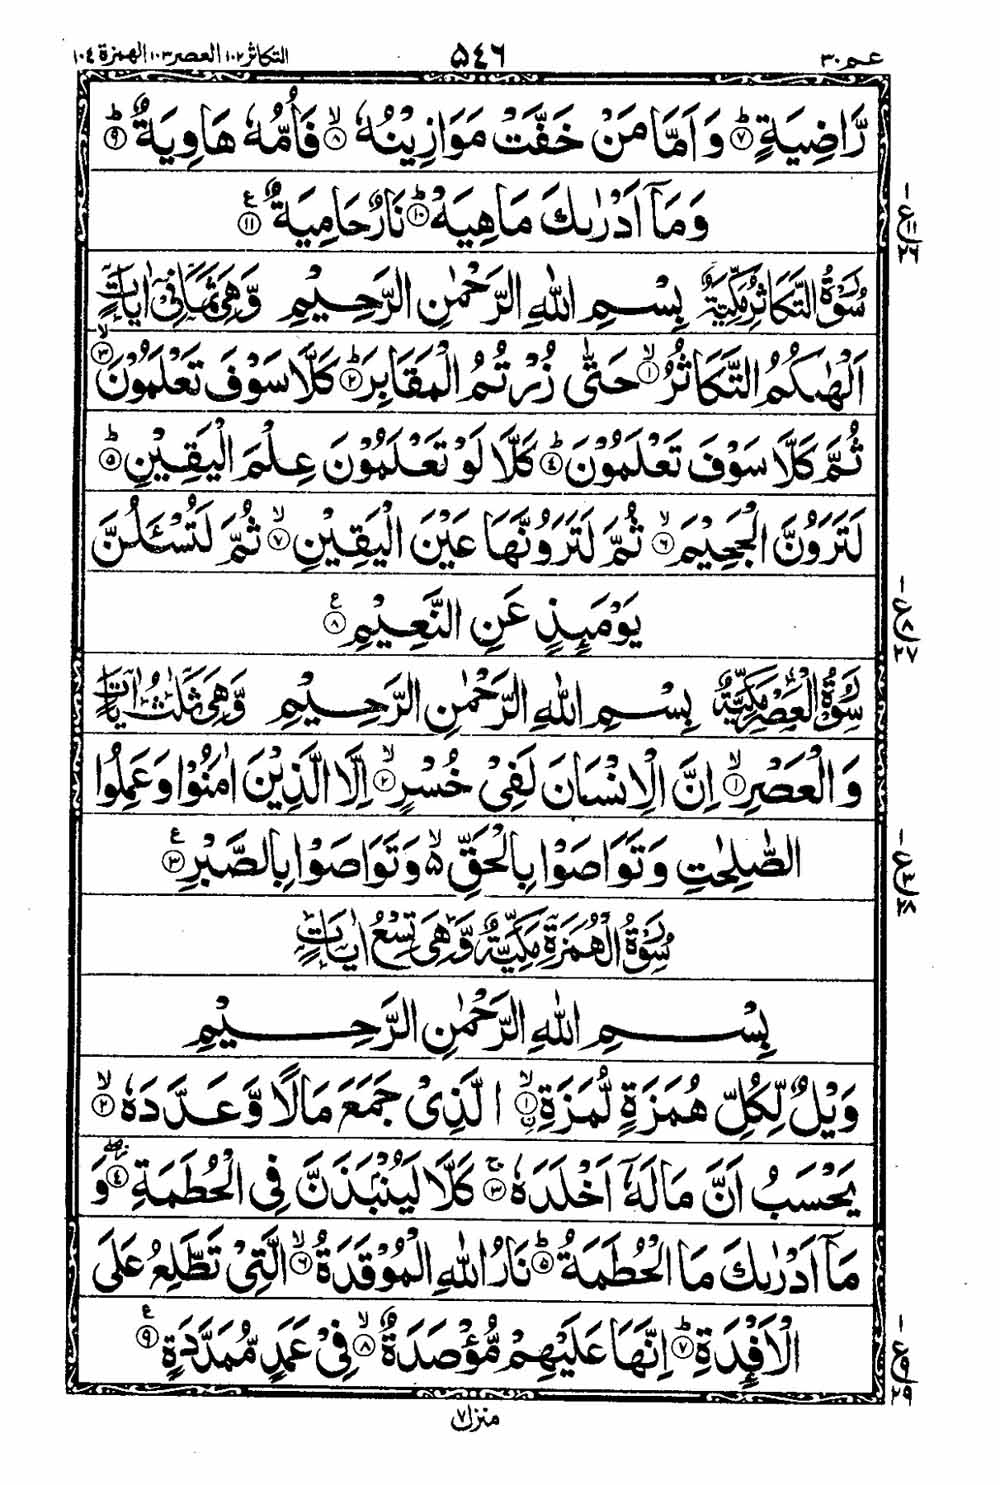 عم ۳۰ ۵۴۶ التكاثر ۱۰۲ العصر ۱۰۳ الهمزة ۱۰۴
رَّاضِيَةٍ ؕ﴿۷﴾ وَ اَمَّا مَنْ خَفَّتْ مَوَازِيْنُهٗ ۙ﴿۸﴾ فَاُمُّهٗ هَاوِيَةٌ ؕ﴿۹﴾
وَمَاۤ اَدْرٰىكَ مَاهِيَهْ ؕ﴿۱۰﴾ نَارٌ حَامِيَةٌ ﴿۱۱﴾ ع
سُوْرَةُ التَّكَاثُرِ مَكِّيَّةٌ بِسْمِ اللهِ الرَّحْمٰنِ الرَّحِيْمِ وَّهِىَ ثَمَانِىْ اٰيَاتٍ
اَلْهٰىكُمُ التَّكَاثُرُ ۙ﴿۱﴾ حَتّٰى زُرْتُمُ الْمَقَابِرَ ؕ﴿۲﴾ كَلَّا سَوْفَ تَعْلَمُوْنَ ۙ﴿۳﴾
ثُمَّ كَلَّا سَوْفَ تَعْلَمُوْنَ ؕ﴿۴﴾ كَلَّا لَوْ تَعْلَمُوْنَ عِلْمَ الْيَقِيْنِ ؕ﴿۵﴾
لَتَرَوُنَّ الْجَحِيْمَ ۙ﴿۶﴾ ثُمَّ لَتَرَوُنَّهَا عَيْنَ الْيَقِيْنِ ۙ﴿۷﴾ ثُمَّ لَتُسْـَٔلُنَّ
يَوْمَئِذٍ عَنِ النَّعِيْمِ ﴿۸﴾ ع
سُوْرَةُ الْعَصْرِ مَكِّيَّةٌ بِسْمِ اللهِ الرَّحْمٰنِ الرَّحِيْمِ وَّهِىَ ثَلٰثُ اٰيَاتٍ
وَ الْعَصْرِ ۙ﴿۱﴾ اِنَّ الْاِنْسَانَ لَفِىْ خُسْرٍ ۙ﴿۲﴾ اِلَّا الَّذِيْنَ اٰمَنُوْا وَ عَمِلُوا
الصّٰلِحٰتِ وَ تَوَاصَوْا بِالْحَقِّ ۵ۙ وَ تَوَاصَوْا بِالصَّبْرِ ﴿۳﴾ ع
سُوْرَةُ الْهُمَزَةِ مَكِّيَّةٌ وَّهِىَ تِسْعُ اٰيَاتٍ
بِسْمِ اللهِ الرَّحْمٰنِ الرَّحِيْمِ
وَيْلٌ لِّكُلِّ هُمَزَةٍ لُّمَزَةٍ ۙ﴿۱﴾ اۨلَّذِىْ جَمَعَ مَالًا وَّ عَدَّدَهٗ ۙ﴿۲﴾
يَحْسَبُ اَنَّ مَالَهٗۤ اَخْلَدَهٗ ۚ﴿۳﴾ كَلَّا لَيُنْۢبَذَنَّ فِى الْحُطَمَةِ ۖ﴿۴﴾ وَ
مَاۤ اَدْرٰىكَ مَا الْحُطَمَةُ ؕ﴿۵﴾ نَارُ اللهِ الْمُوْقَدَةُ ۙ﴿۶﴾ الَّتِىْ تَطَّلِعُ عَلَى
الْاَفْـِٕدَةِ ؕ﴿۷﴾ اِنَّهَا عَلَيْهِمْ مُّؤْصَدَةٌ ۙ﴿۸﴾ فِىْ عَمَدٍ مُّمَدَّدَةٍ ﴿۹﴾ ع
ع ۱۱ ۲۶
ع ۸ ۲۷
ع ۳ ۲۸
ع ۹ ۲۹
منزل ۷